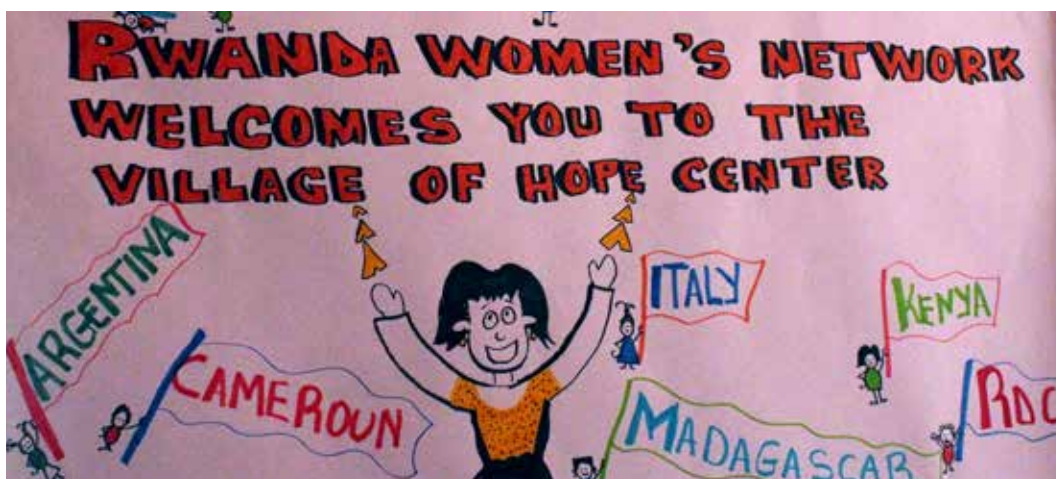 RWANDA WOMEN'S NETWORK
WELCOMES YOU TO THE
VILLAGE OF HOPE CENTER
ARGENTINA
CAMEROUN
ITALY
KENYA
MADAGASCAR
RDC